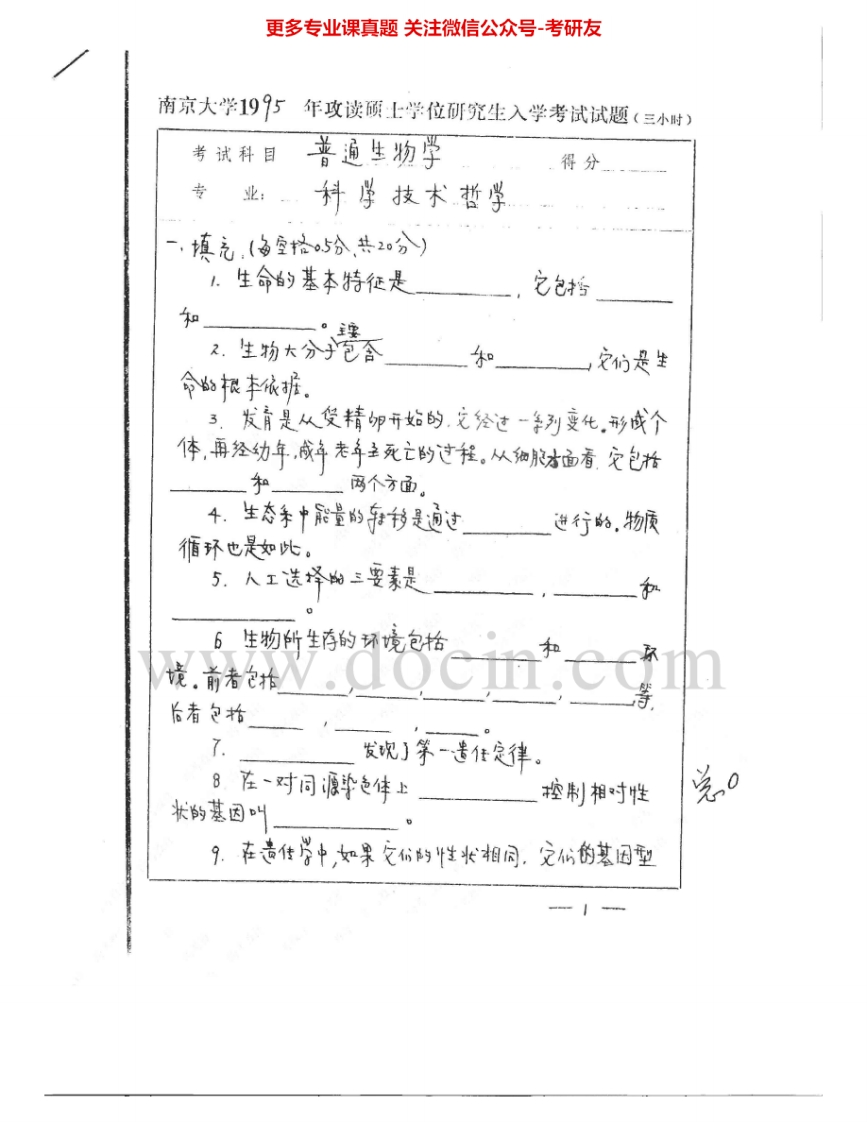 更多专业课真题 关注微信公众号-考研友
南京大学1995 年攻读硕士学位研究生入学考试试题(三小时)
考试科目 普通生物学 得分
专 业: 科学技术哲学
一、填充.(每空格0.5分,共20分)
1. 生命的基本特征是__________,它包括________
和__________。
主要
2. 生物大分子包含________和_________,它们是生
命的根本依据。
3. 发育是从受精卵开始的.它经过一系列变化。形成个
体,再经幼年,成年老年至死亡的过程。从细胞方面看.它包括
_______和_______两个方面。
4. 生态系中能量的转移是通过________进行的。物质
循环也是如此。
5. 人工选择的三要素是__________,________和
___________。
6 生物所生存的环境包括________和______环
境。前者包括______,______,______,______,______等,
后者包括_____,_____,_____。
7. __________发现了第一遗传定律。
8 在一对同源染色体上__________控制相对性
状的基因叫___________。
9. 在遗传学中,如果它们的性状相同.它们的基因型
— 1 —
www.docin.com